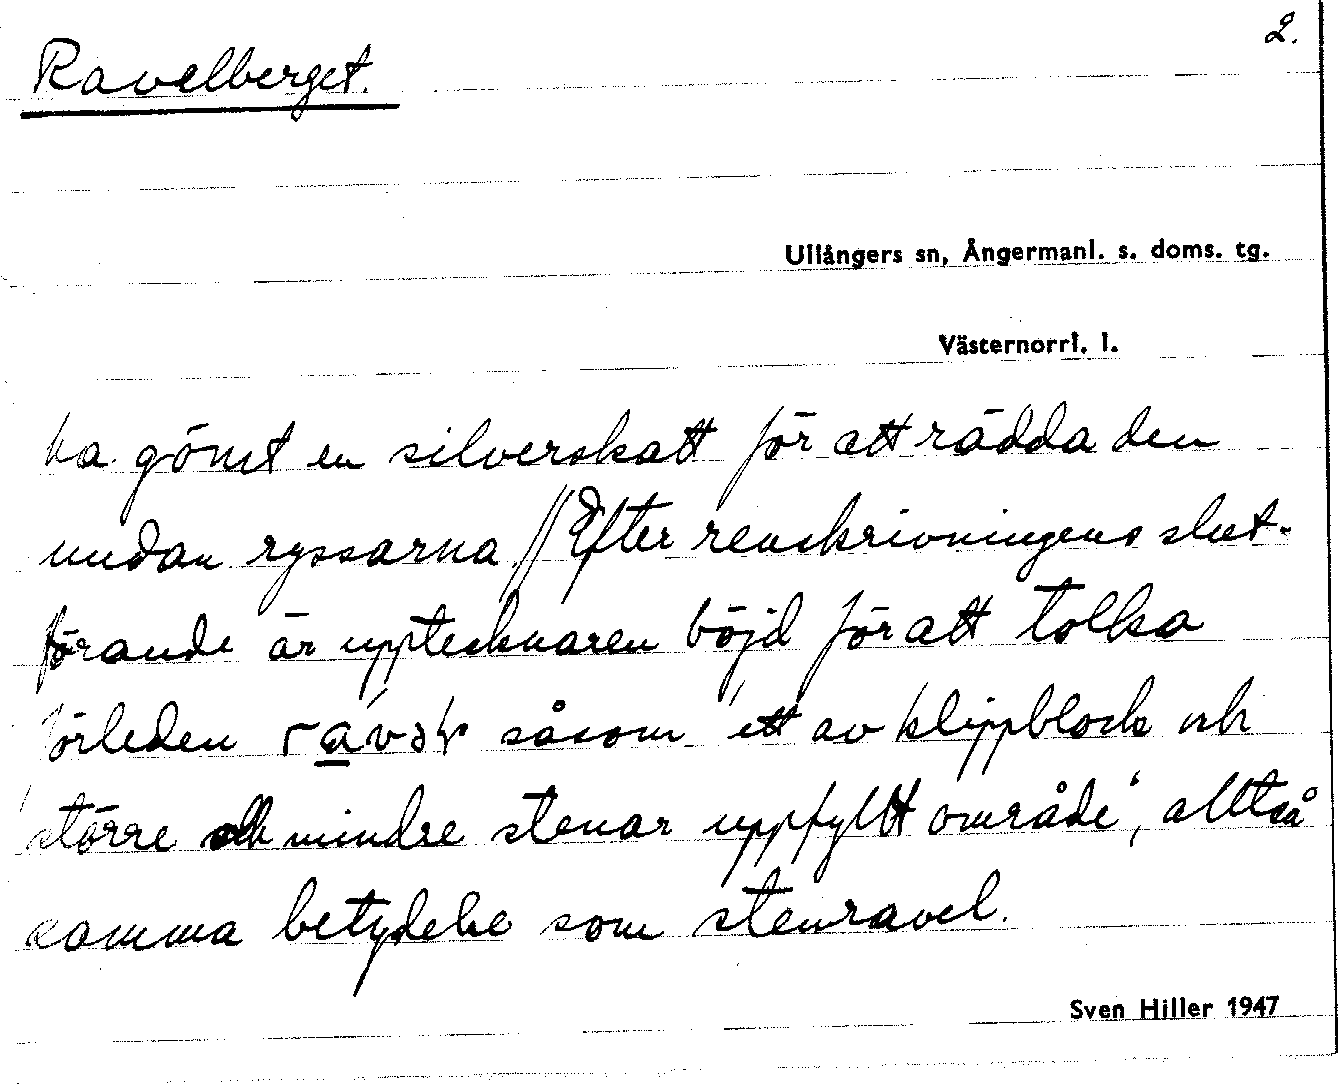 2.
Ravelberget.
Ullångers sn, Ångermanl. s. doms. tg.
Västernorrl. l.
ha gömt en silverskatt för att rädda den
undan ryssarna. // Efter renskrivningens slut-
förande är upptecknaren böjd för att tolka
förleden såsom 'ett av klippblock och
större och mindre stenar uppfyllt område', alltså
samma betydelse som stenravel.
Sven Hiller 1947